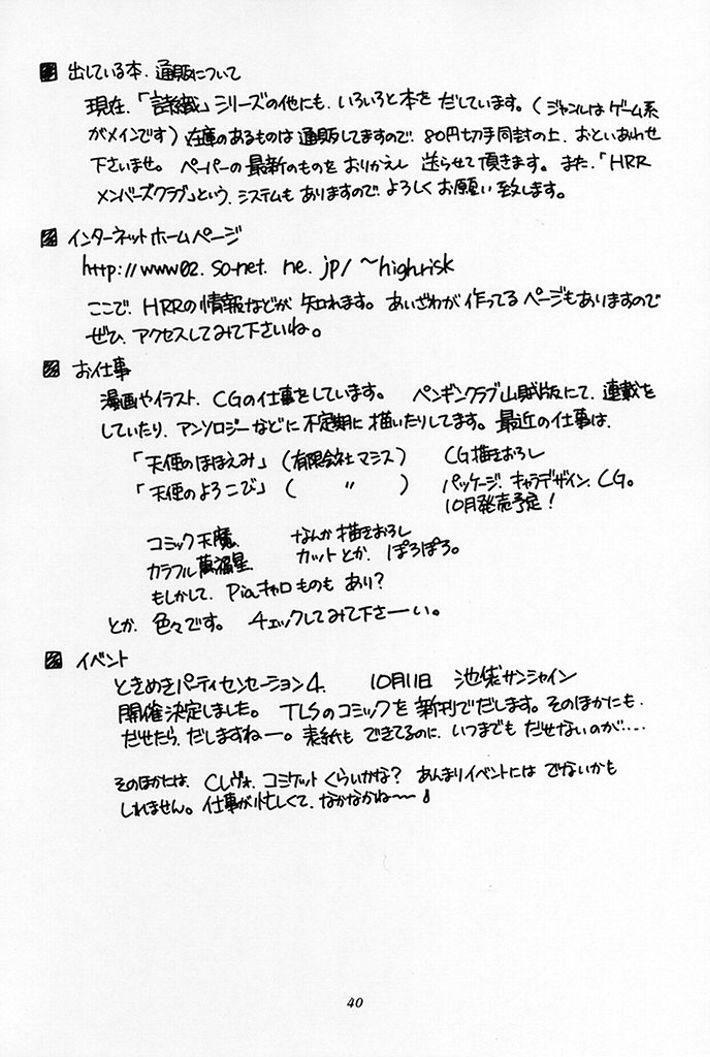 出している本、通販について
現在、「諸織」シリーズの他にも、いろいろと本をだしています。(ジャンルはゲーム系
がメインです)在庫のあるものは通販してますので、80円切手同封の上、おといあわせ
下さいませ。ペーパーの最新のものをおりかえし送らせて頂きます。また、「HRR
メンバーズクラブ」という、システムもありますので、よろしくお願い致します。
インターネットホームページ
http://www02.so-net.ne.jp/~highrisk
ここで、HRRの情報などが知れます。あいざわが作ってるページもありますので
ぜひ、アクセスしてみて下さいね。
お仕事
漫画やイラスト、CGの仕事をしています。 ペンギンクラブ山賊版にて、連載を
していたり、アンソロジーなどに不定期に描いたりしてます。最近の仕事は、
「天使のほほえみ」(有限会社マシス) CG描きおろし
「天使のよろこび」( 〃 ) パッケージ、キャラデザイン、CG。
10月発売予定!
コミック天魔、 なんか描きおろし
カラフル萬福星、 カットとか、ぽろぽろ。
もしかして、Piaキャロものもあり?
とか、色々です。 チェックしてみて下さーい。
イベント
ときめきパーティセンセーション4、 10月11日 池袋サンシャイン
開催決定しました。 TLSのコミックを新刊でだします。そのほかにも、
だせたら、だしますねー。表紙もできてるのに、いつまでもだせないのが‥‥
そのほかには、Cレヴォ、コミケットくらいかな? あんまりイベントにはでないかも
しれません。仕事が忙しくて、なかなかね〜〜♪
40